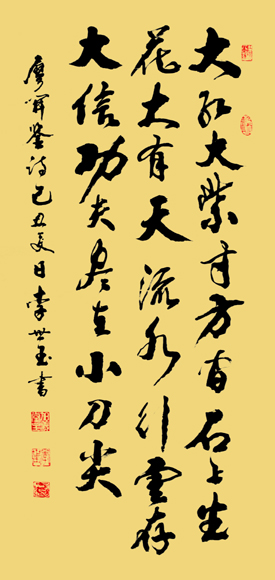 大红大紫寸方石上生
花大有天流水行雲存
大信功夫尽在小刀尖
廖鉴诗己丑夏日李世玉书